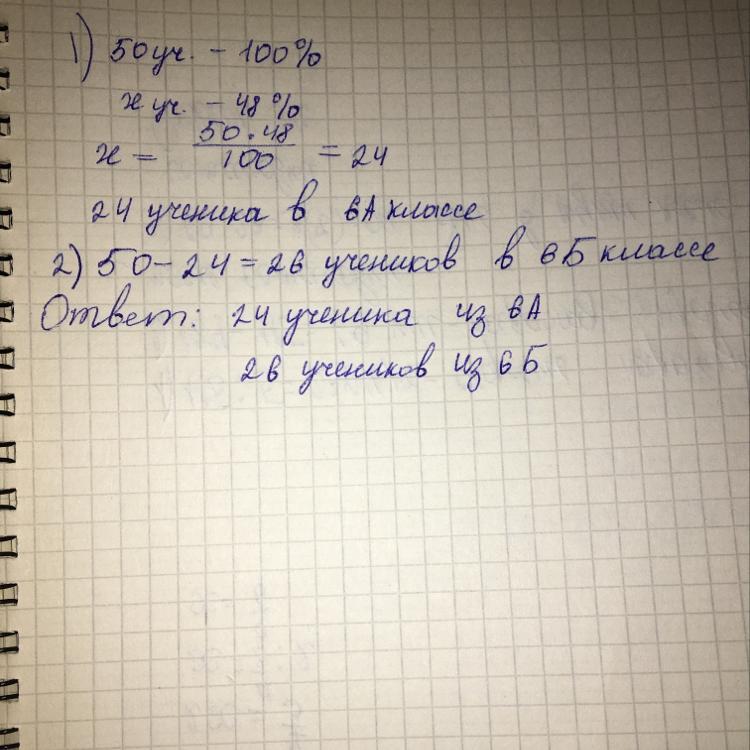 1) 50 уч. - 100%
х уч. - 48%
х = 50 · 48 / 100 = 24
24 ученика в 6А классе
2) 50 - 24 = 26 учеников в 6Б классе
Ответ: 24 ученика из 6А
26 учеников из 6Б